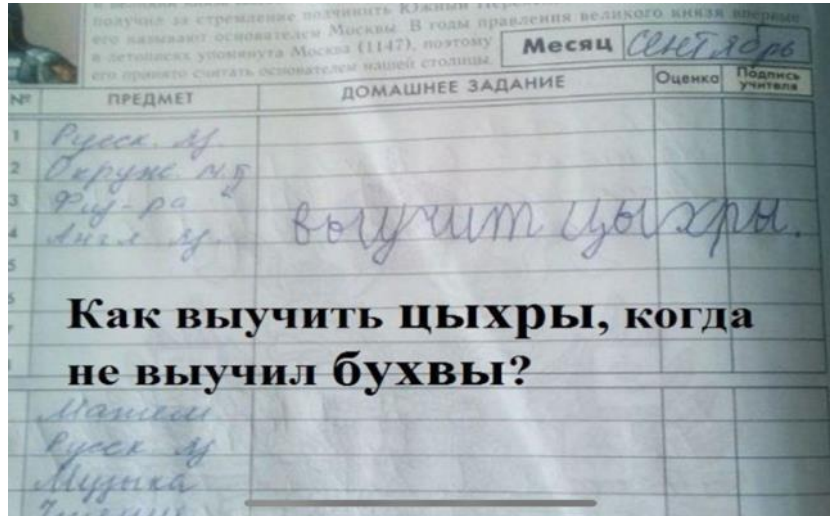 получил за стремление подчинить Южный
его называют основателем Москвы. В годы правления великого князя впервые
в летописях упомянута Москва (1147), поэтому
его принято считать основателем нашей столицы.
Месяц Сентябрь
№ ПРЕДМЕТ ДОМАШНЕЕ ЗАДАНИЕ Оценка Подпись учителя
1 Русск. яз.
2 Окруж. м.
3 Физ-ра
4 Англ яз. выучит цыхры.
5
Как выучить цыхры, когда
не выучил бухвы?
Матем
Русск яз
Музыка
Чтение